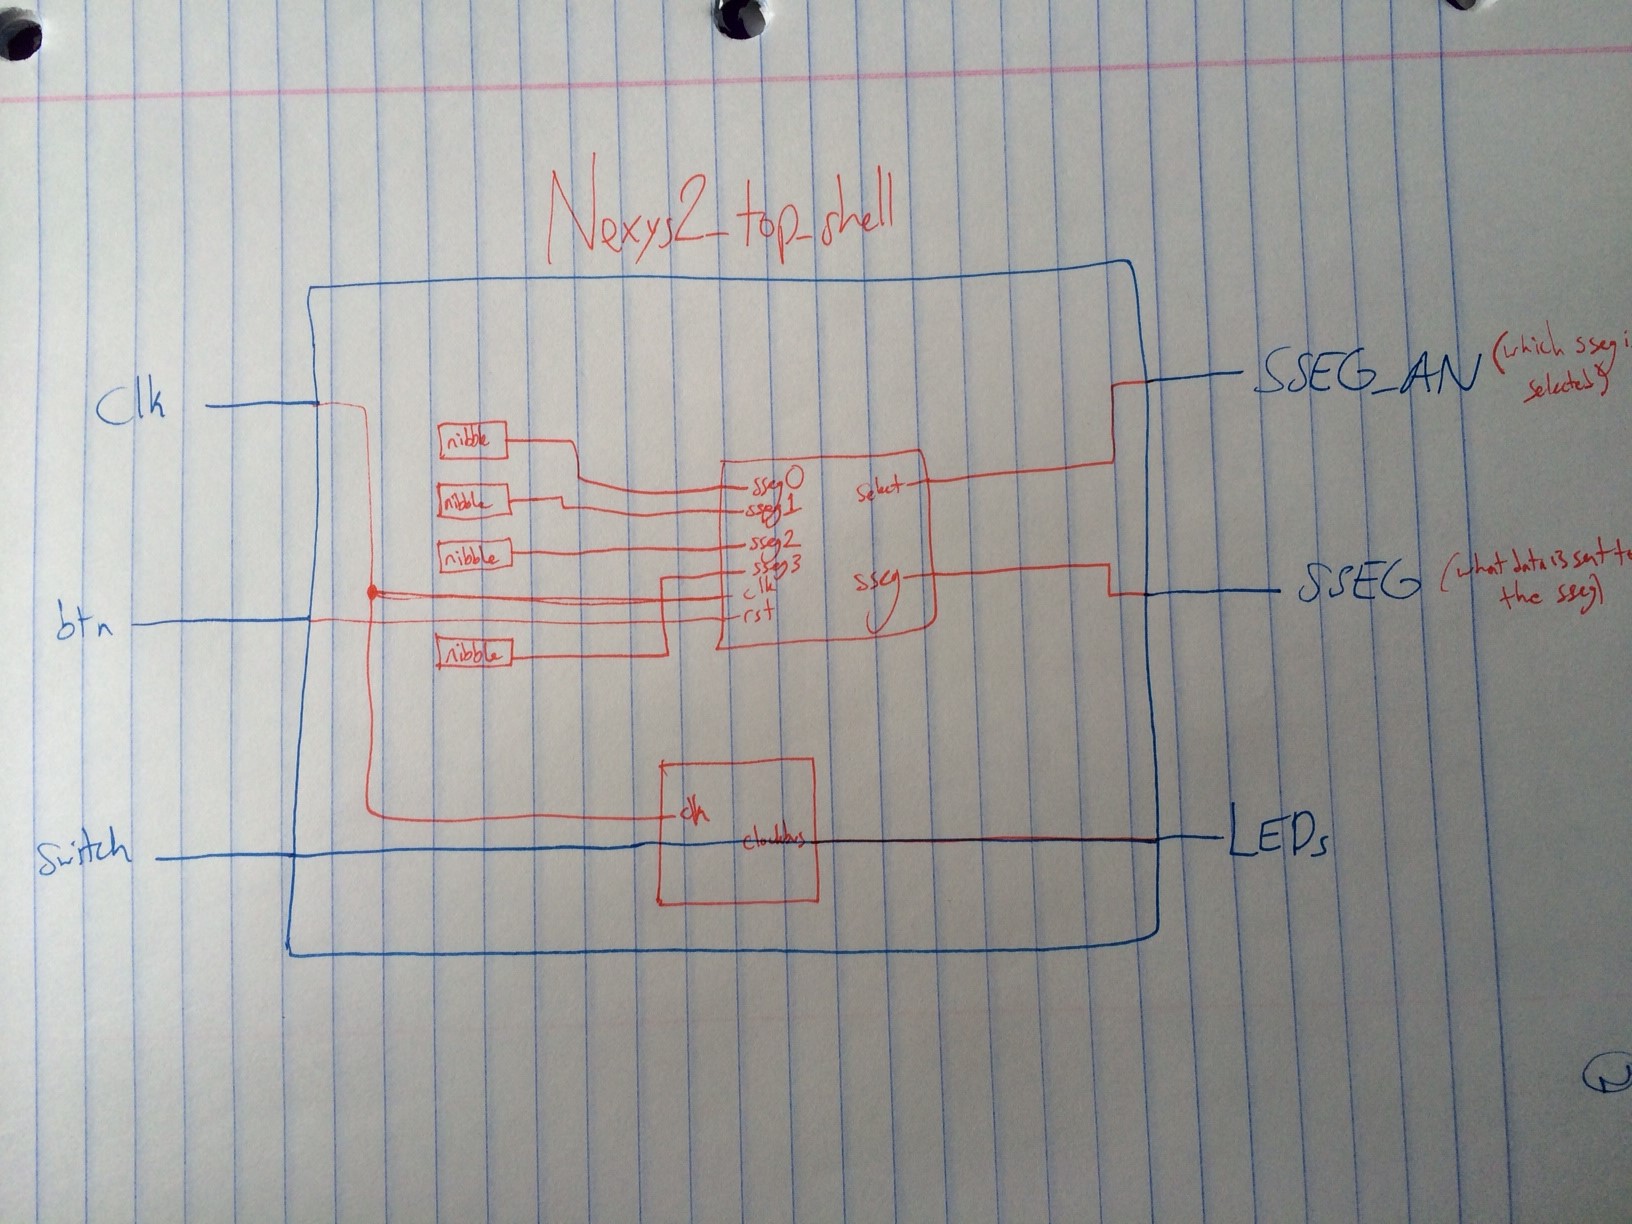 Nexys2_top_shell
Clk
btn
Switch
nibble
nibble
nibble
nibble
sseg0
sseg1
sseg2
sseg3
clk
rst
select
sseg
clk
clockbus
SSEG_AN (which sseg i
selected)
SSEG (what data is sent to
the sseg)
LEDs